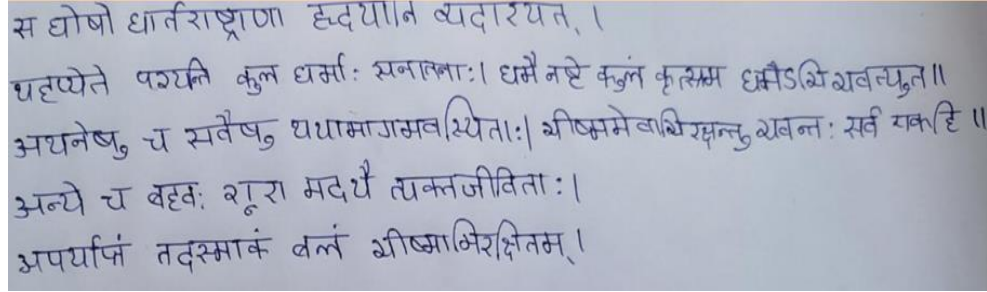 स घोषो धार्तराष्ट्राणा हृदयानि व्यदारयत् ।
यद्दप्येते पश्यन्ति कुल धर्माः सनातनाः। धर्मे नष्टे कुलं कृत्सम धर्मोऽभिभवत्युत॥
अथनेषु च सर्वेषु यथामागमवस्थिताः। भीष्ममेवाभिरक्षन्तु भवन्तः सर्व यकहि॥
अन्ये च बहवः शूरा मदर्थे त्यक्तजीविताः।
अपर्याप्तं तदस्माकं बलं भीष्माभिरक्षितम्।